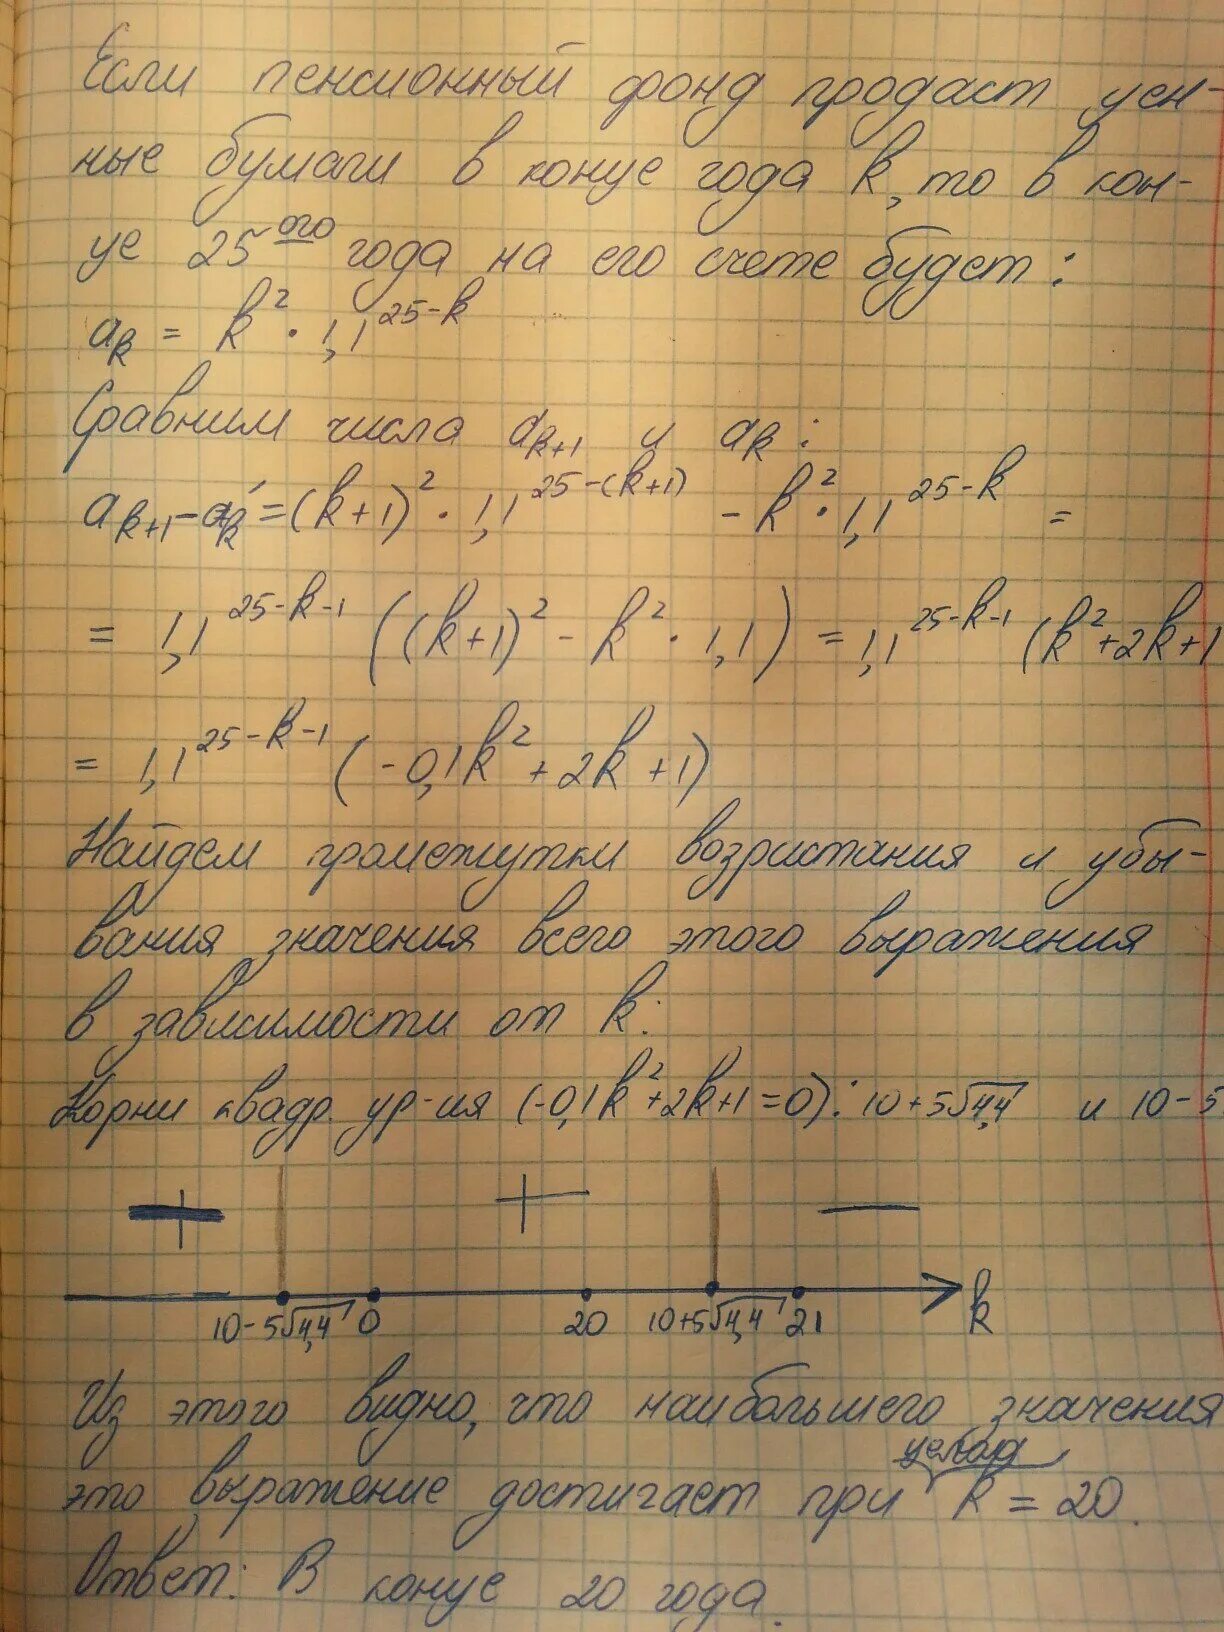 Если пенсионный фонд продаст цен-
ные бумаги в конце года k, то в кон-
це 25ого года на его счете будет:
aₖ = k² · 1,1²⁵⁻ᵏ
Сравним числа aₖ₊₁ и aₖ:
aₖ₊₁ - aₖ = (k+1)² · 1,1²⁵⁻⁽ᵏ⁺¹⁾ - k² · 1,1²⁵⁻ᵏ =
= 1,1²⁵⁻ᵏ⁻¹ ((k+1)² - k² · 1,1) = 1,1²⁵⁻ᵏ⁻¹ (k²+2k+1
= 1,1²⁵⁻ᵏ⁻¹ (-0,1k² + 2k + 1)
Найдем промежутки возристания и убы-
вания значения всего этого выражения
в зависимости от k:
Корни квадр. ур-ия (-0,1k²+2k+1=0): 10+5√4,4 и 10-5
+ —
10-5√4,4 0 20 10+5√4,4 21 k
Из этого видно, что наибольшего значения
целая
это выражение достигает при k = 20.
Ответ: В конце 20 года.